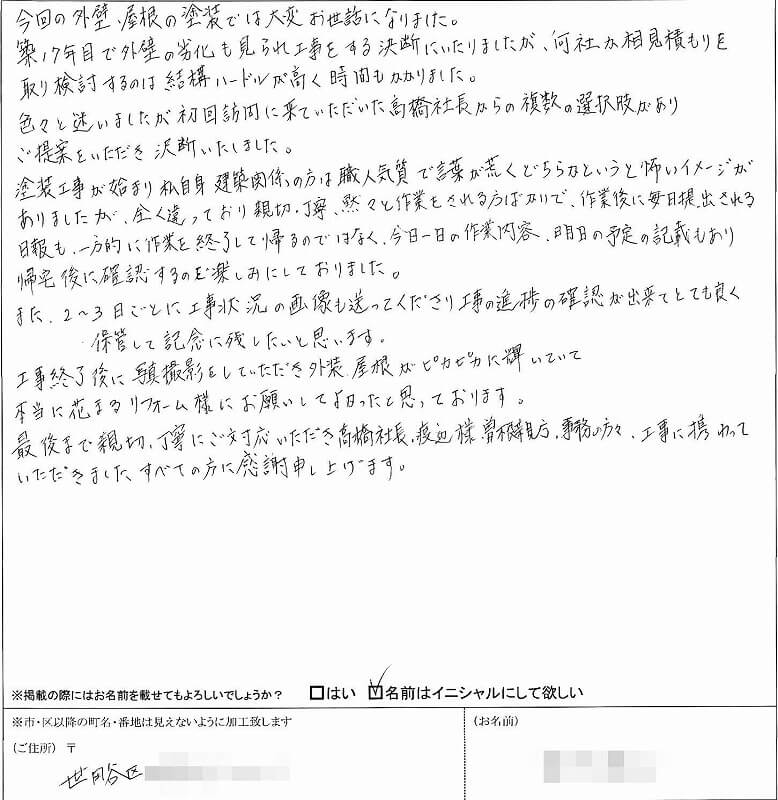 今回の外壁、屋根の塗装では大変お世話になりました。
築17年目で外壁の劣化も見られ工事をする決断にいたりましたが、何社か相見積もりを
取り検討するのは結構ハードルが高く時間もかかりました。
色々と迷いましたが初回訪問に来ていただいた高橋社長からの複数の選択肢があり
ご提案をいただき決断いたしました。
塗装工事が始まり私自身建築関係の方は職人気質で言葉が荒くどちらかというと怖いイメージが
ありましたが、全く違っており親切、丁寧、黙々と作業をされる方ばかりで、作業後に毎日提出される
日報も、一方的に作業を終了して帰るのではなく、今日一日の作業内容、明日の予定の記載もあり
帰宅後に確認するのを楽しみにしておりました。
また、2〜3日ごとに工事状況の画像も送ってくださり工事の進捗の確認が出来てとても良く
保管して記念に残したいと思います。
工事終了後に写真撮影をしていただき外装、屋根がピカピカに輝いていて
本当に花まるリフォーム様にお願いしてよかったと思っております。
最後まで親切、丁寧にご対応いただき高橋社長、渡辺様、曽根親方、事務の方々、工事に携わって
いただきました、すべての方に感謝申し上げます。
※掲載の際にはお名前を載せてもよろしいでしょうか? □はい ☑名前はイニシャルにして欲しい
※市・区以降の町名・番地は見えないように加工致します
(お名前)
(ご住所) 〒
世田谷区